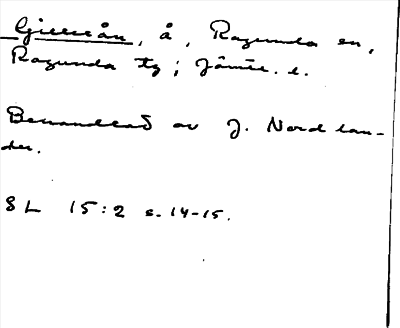 Gisseån, å, Ragunda sn,
Ragunda tg; Jämtl. l.
Behandlad av J. Nordlan-
der.
SL 15:2 s. 14-15.